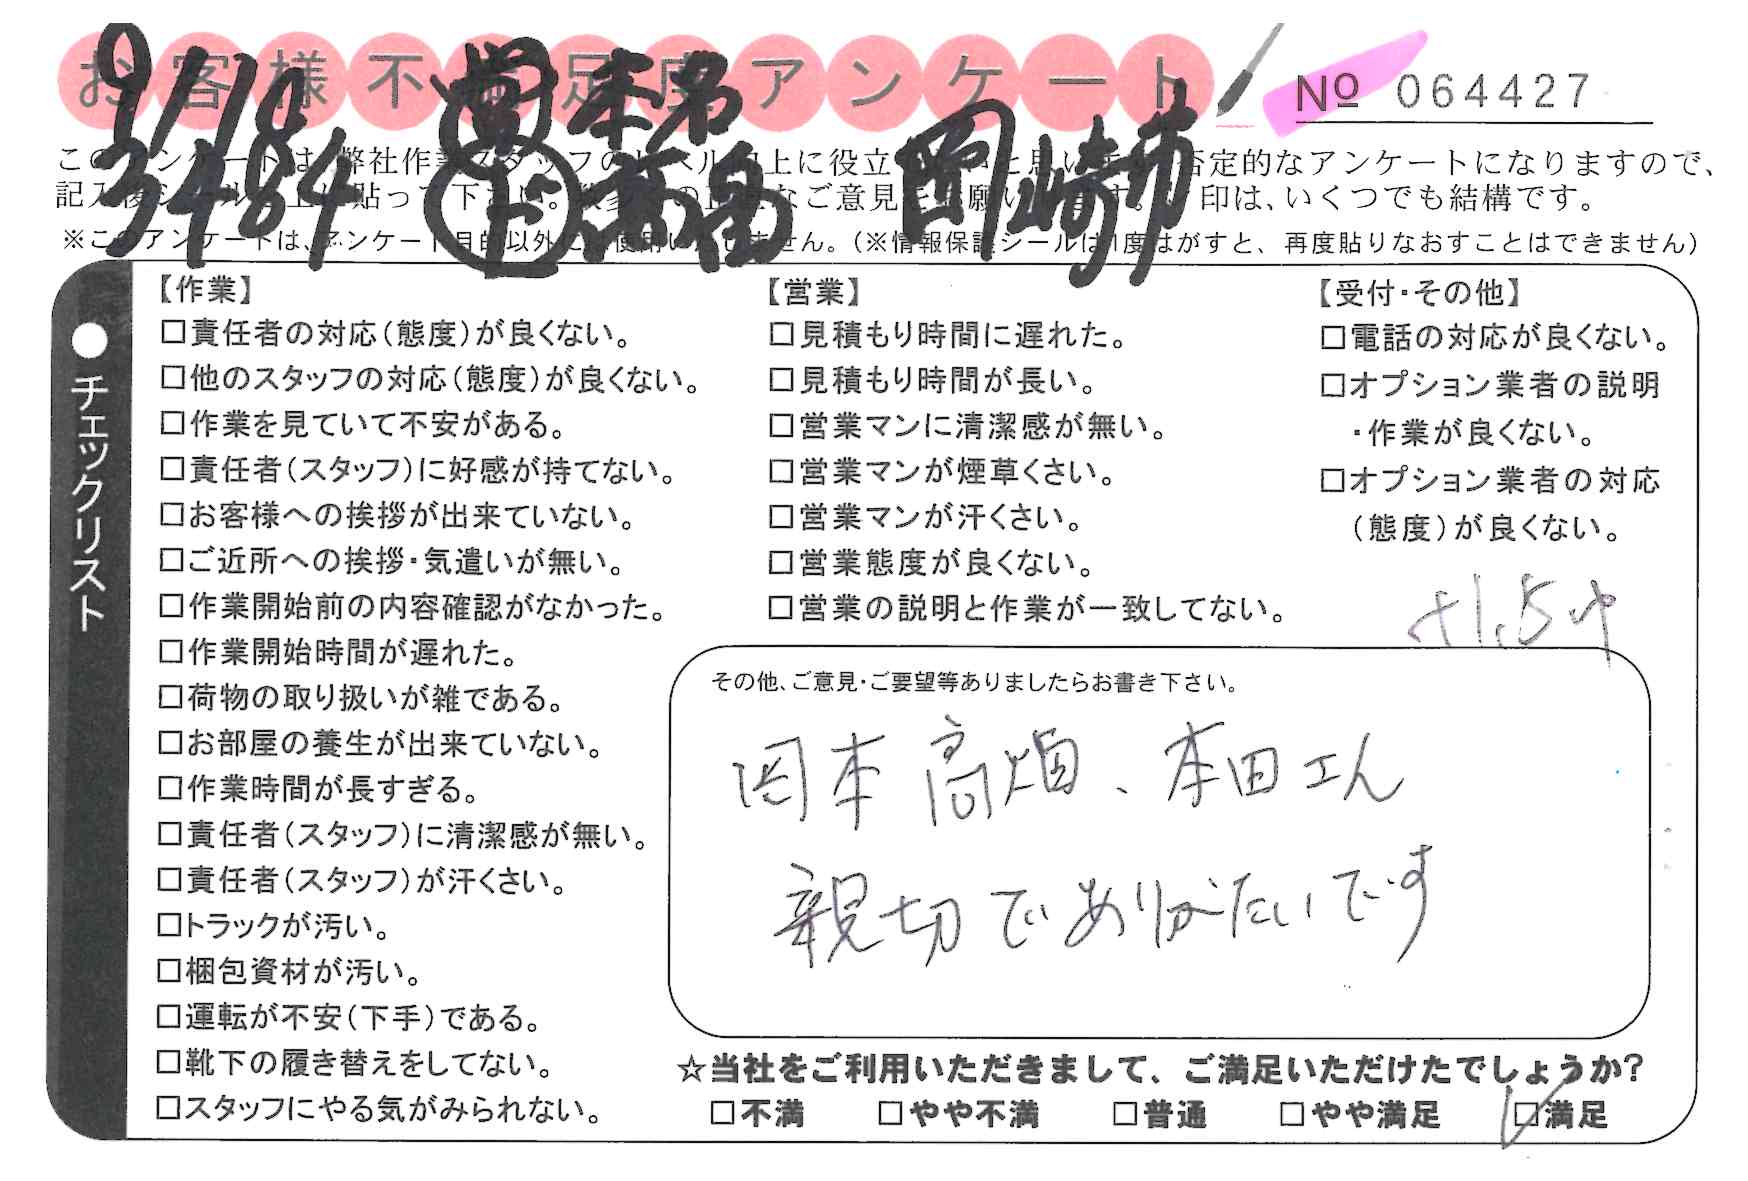 お客様不満足度アンケート
№ 064427
9/18 営 本弟
3484 下 高畠 岡崎市
このアンケートは、弊社作業スタッフのレベル向上に役立てたいと思います。否定的なアンケートになりますので、
記入後シールを上に貼って下さい。
なご意見をお願い
印は、いくつでも結構です。
※このアンケートは、アンケート目的以外には使用いたしません。(※情報保護シールは1度はがすと、再度貼りなおすことはできません)
●チェックリスト
【作業】
□責任者の対応(態度)が良くない。
□他のスタッフの対応(態度)が良くない。
□作業を見ていて不安がある。
□責任者(スタッフ)に好感が持てない。
□お客様への挨拶が出来ていない。
□ご近所への挨拶・気遣いが無い。
□作業開始前の内容確認がなかった。
□作業開始時間が遅れた。
□荷物の取り扱いが雑である。
□お部屋の養生が出来ていない。
□作業時間が長すぎる。
□責任者(スタッフ)に清潔感が無い。
□責任者(スタッフ)が汗くさい。
□トラックが汚い。
□梱包資材が汚い。
□運転が不安(下手)である。
□靴下の履き替えをしてない。
□スタッフにやる気がみられない。
【営業】
□見積もり時間に遅れた。
□見積もり時間が長い。
□営業マンに清潔感が無い。
□営業マンが煙草くさい。
□営業マンが汗くさい。
□営業態度が良くない。
□営業の説明と作業が一致してない。
【受付・その他】
□電話の対応が良くない。
□オプション業者の説明
・作業が良くない。
□オプション業者の対応
(態度)が良くない。
+1.5
その他、ご意見・ご要望等ありましたらお書き下さい。
岡本 高畑、本田さん
親切でありがたいです
☆当社をご利用いただきまして、ご満足いただけたでしょうか?
□不満 □やや不満 □普通 □やや満足 ☑満足